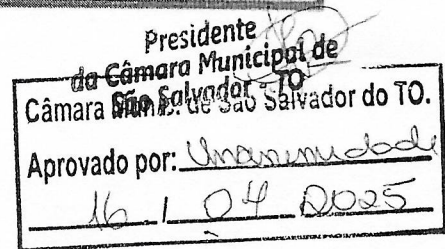 Presidente
da Câmara Municipal de
São Salvador - TO
Câmara Munic. de São Salvador do TO.
Aprovado por: Unanimidade
16 / 04 2025